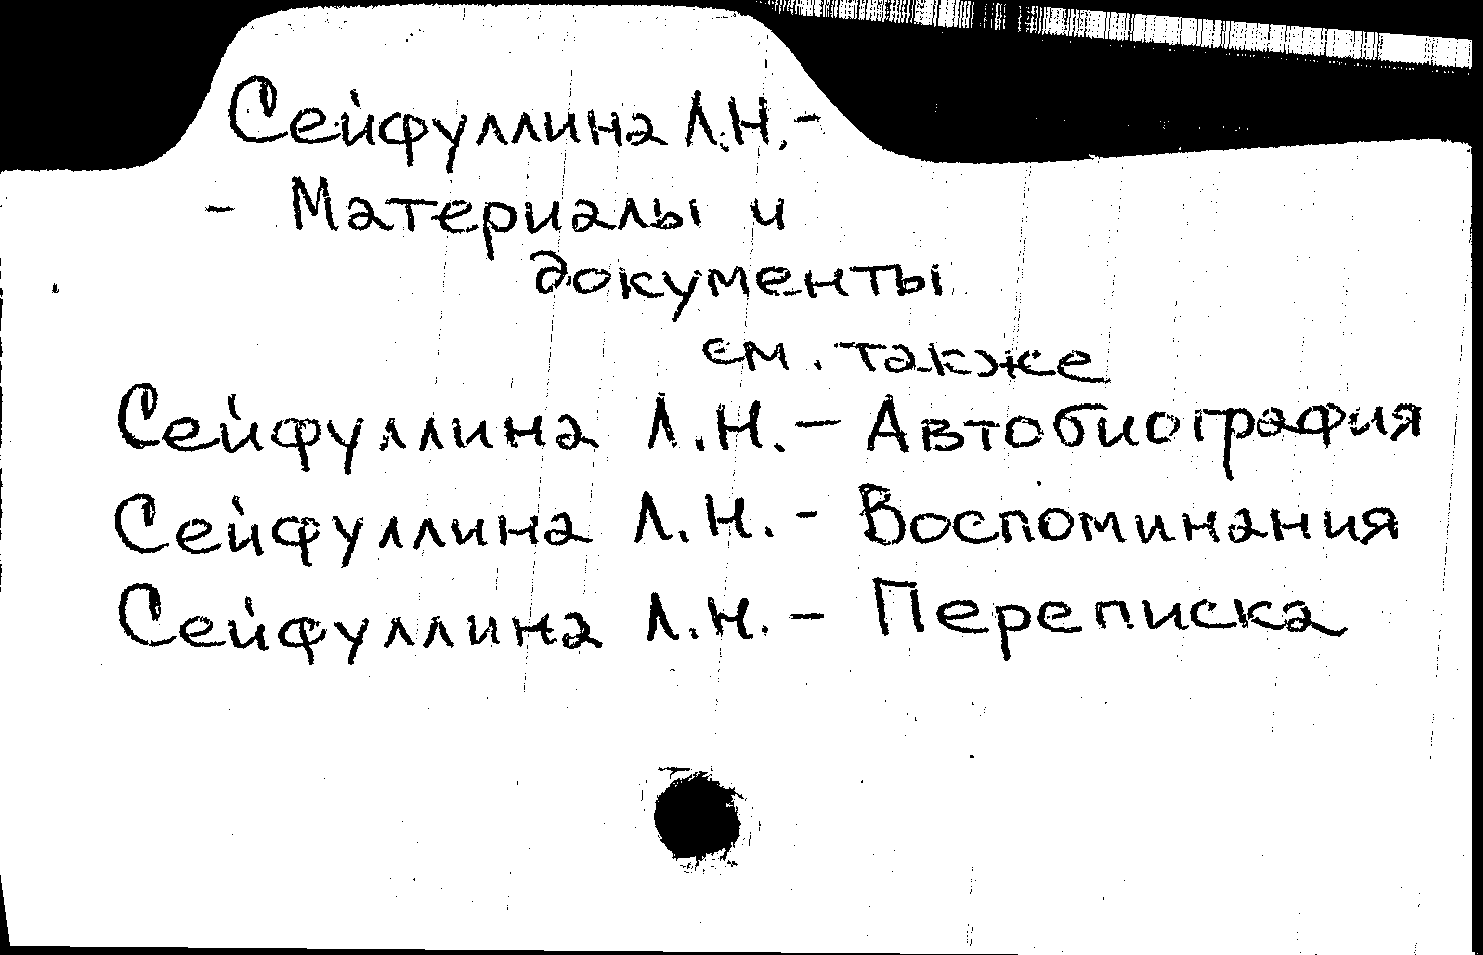 Сейфуллина Л.Н.-
- Материалы и
документы
см. также
Сейфуллина Л.Н. – Автобиография
Сейфуллина Л.Н. - Воспоминания
Сейфуллина Л.Н. – Переписка